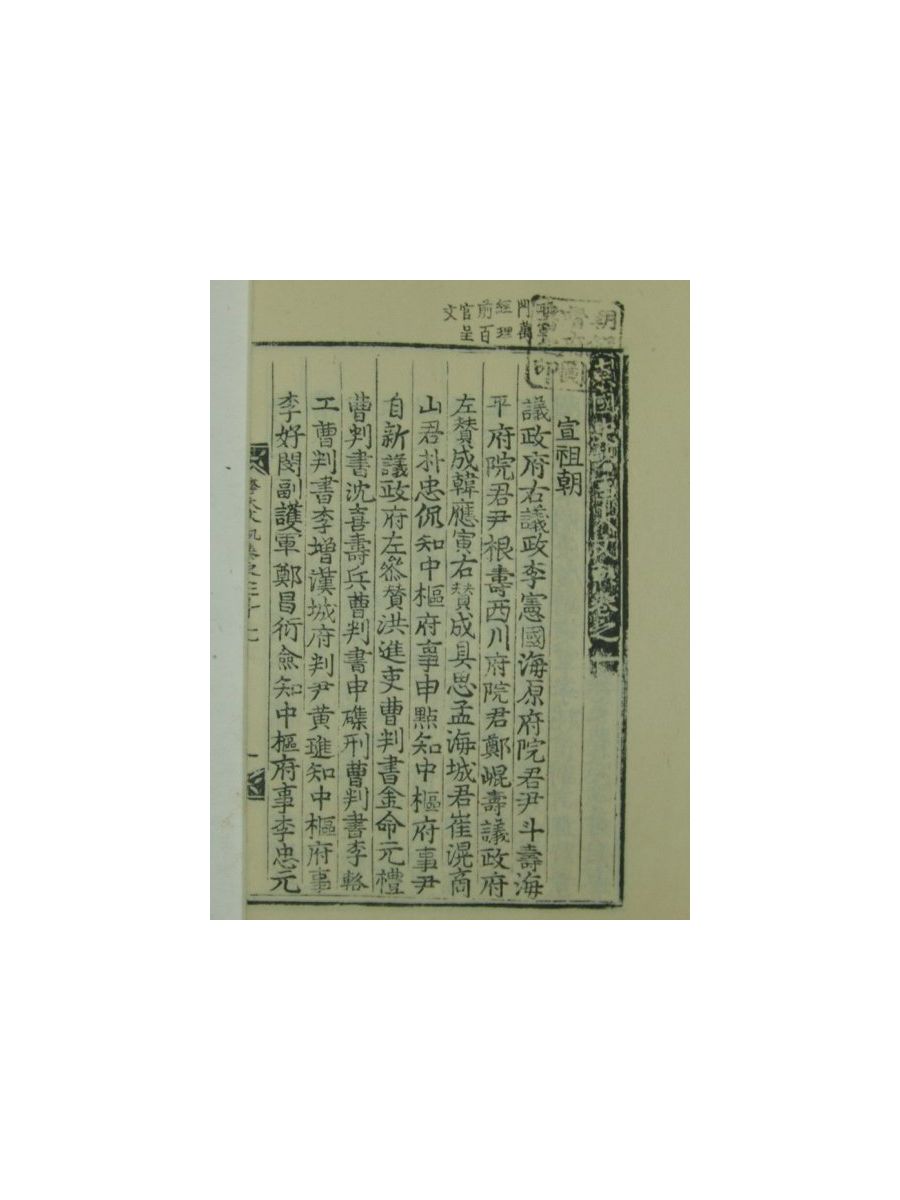 宣祖朝
議政府右議政李憲國海原府院君尹斗壽海
平府院君尹根壽西川府院君鄭崐壽議政府
左賛成韓應寅右賛成具思孟海城君崔滉商
山君朴忠侃知中樞府事申點知中樞府事尹
自新議政府左叅賛洪進吏曹判書金命元禮
曹判書沈喜壽兵曹判書申磼刑曹判書李輅
工曹判書李增漢城府判尹黃璡知中樞府事
李好閔副護軍鄭昌衍僉知中樞府事李忠元
門萬
經理
前百
官呈
文